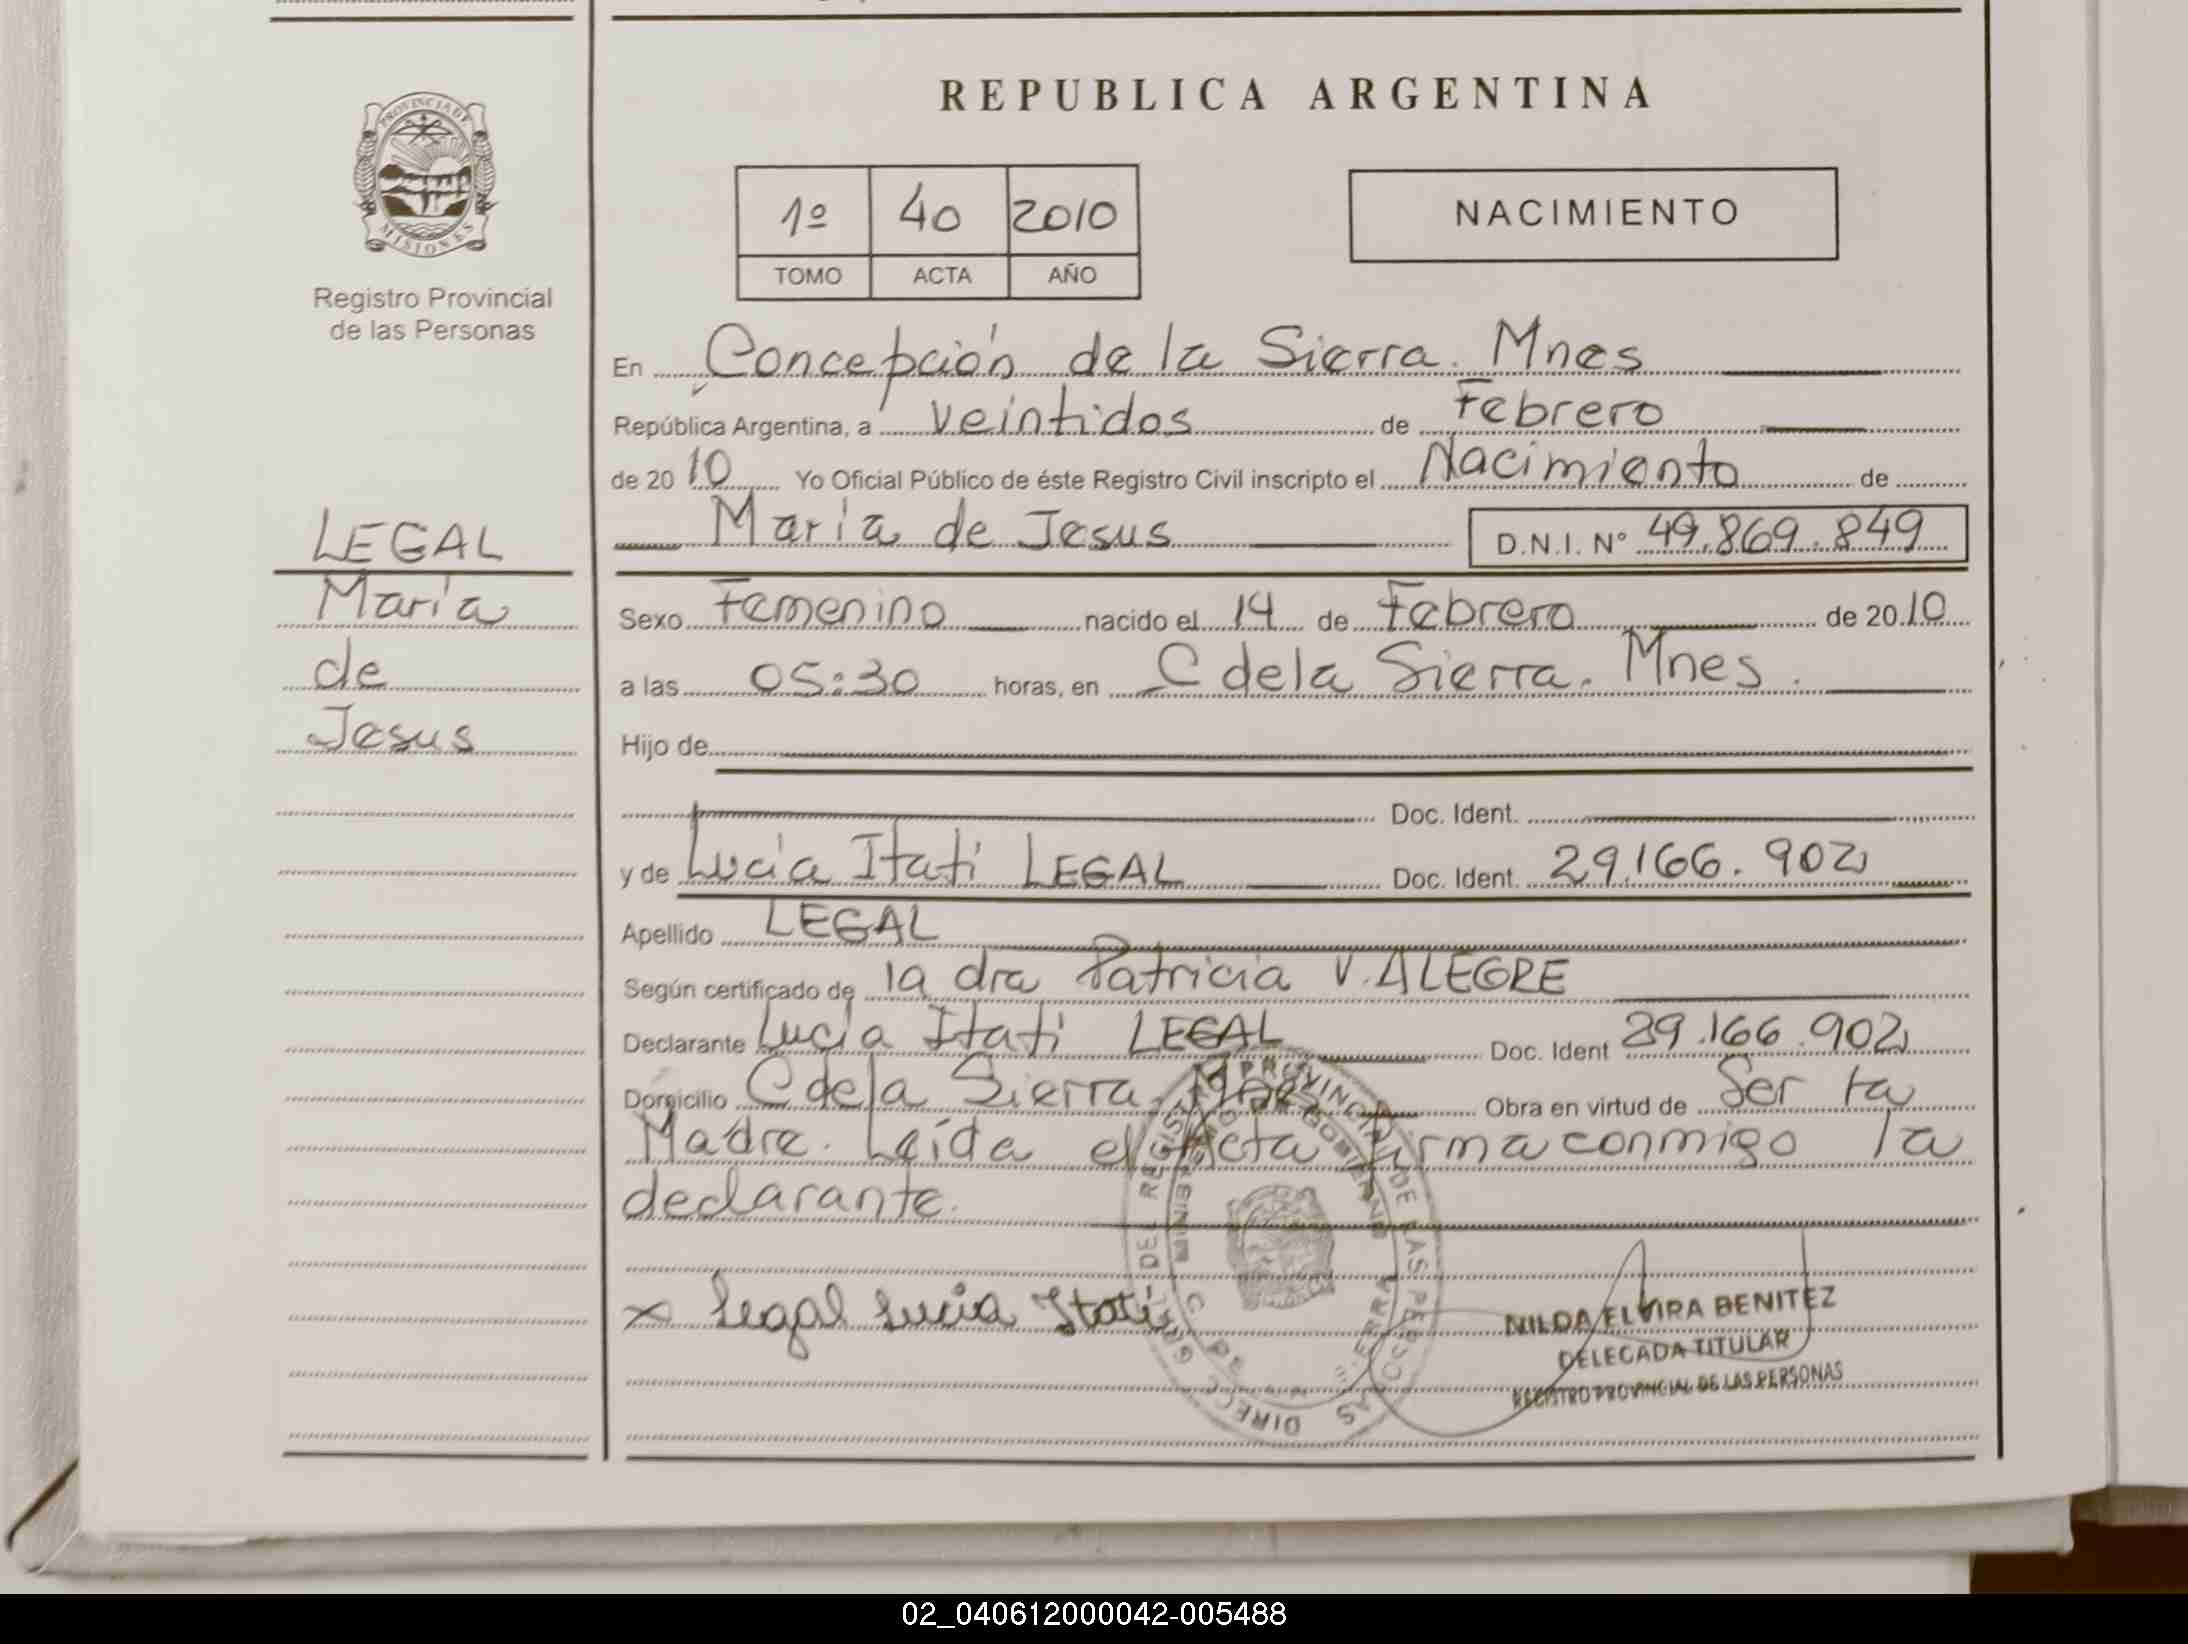 REPUBLICA ARGENTINA
PROVINCIA DE
MISIONES
Registro Provincial
de las Personas
1º 40 2010
TOMO ACTA AÑO
NACIMIENTO
LEGAL
María
de
Jesus
En Concepción de la Sierra. Mnes
República Argentina, a veintidos de Febrero
de 2010 Yo Oficial Público de éste Registro Civil inscripto el Nacimiento de
María de Jesus D.N.I. N° 49.869.849
Sexo Femenino nacido el 14 de Febrero de 2010
a las 05:30 horas, en C de la Sierra. Mnes.
Hijo de
Doc. Ident.
y de Lucía Itati LEGAL Doc. Ident. 29.166.902
Apellido LEGAL
Según certificado de la dra Patricia V. ALEGRE
Declarante Lucía Itati LEGAL Doc. Ident 29.166.902
Domicilio C de la Sierra. Mnes Obra en virtud de Ser la
Madre. Leída el Acta firma conmigo la
declarante.
x Legal Lucia Itati
NILDA ELVIRA BENITEZ
DELEGADA TITULAR
REGISTRO PROVINCIAL DE LAS PERSONAS
02_040612000042-005488